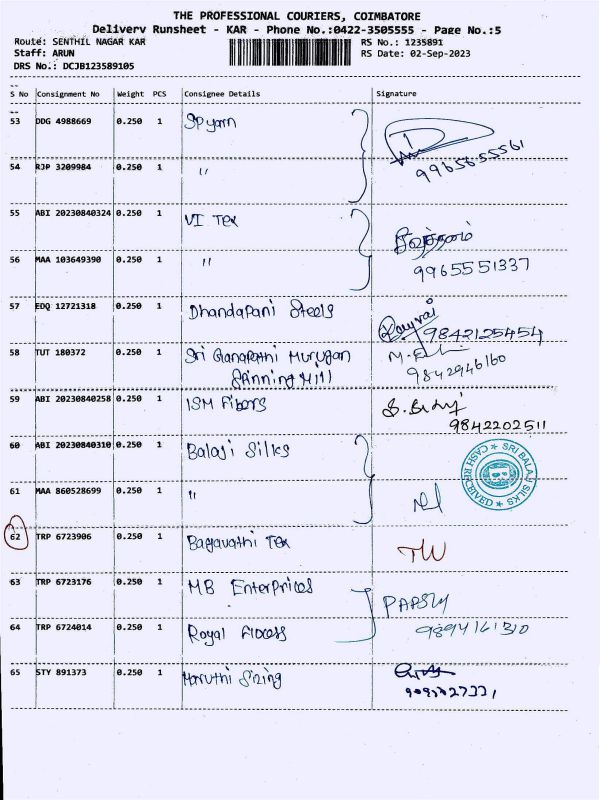 THE PROFESSIONAL COURIERS, COIMBATORE
Delivery Runsheet - KAR - Phone No.:0422-3505555 - Page No.:5
Route: SENTHIL NAGAR KAR
RS No.: 1235891
Staff: ARUN
RS Date: 02-Sep-2023
DRS No.: DCJB123589105
S No Consignment No Weight PCS Consignee Details Signature
53 DDG 4988669 0.250 1 SP yarn
99656 55561
54 RJP 3209984 0.250 1 "
55 ABI 20230840324 0.250 1 VI Tex
56 MAA 103649390 0.250 1 " 9965551337
57 EDQ 12721318 0.250 1 Dhandapani Steels
9842125454
58 TUT 180372 0.250 1 Sri Ganapathi Murugan
Spinning Mill 9842946160
59 ABI 20230840258 0.250 1 ISM Fibers
9842202511
60 ABI 20230840310 0.250 1 Balaji Silks
SRI BALAJI SILKS
CASH RECEIVED
61 MAA 860528699 0.250 1 "
62 TRP 6723906 0.250 1 Bagavathi Tex
63 TRP 6723176 0.250 1 MB Enterprices
64 TRP 6724014 0.250 1 Royal 9894161310
65 STY 891373 0.250 1 Maruthi Sizing